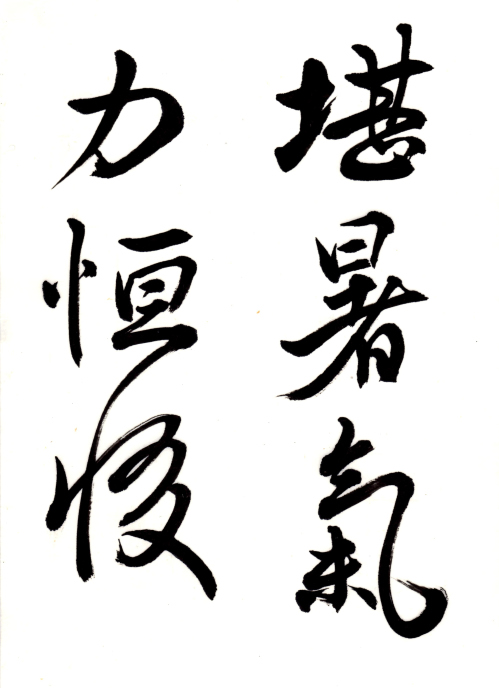 堪暑氣
力恒惙